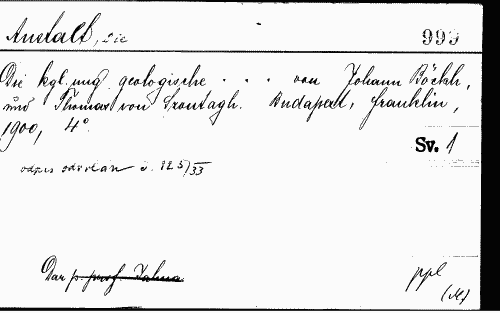 Anstalt, Die
999
Die kgl. ung geologische . . . von Johann Böckh,
und Thomas von Szontagh. Budapest, Franklin,
1900, 4°.
Sv. 1
odpis odeslán č. 125/33
Dar p. prof. Jahna
ppl
(M)